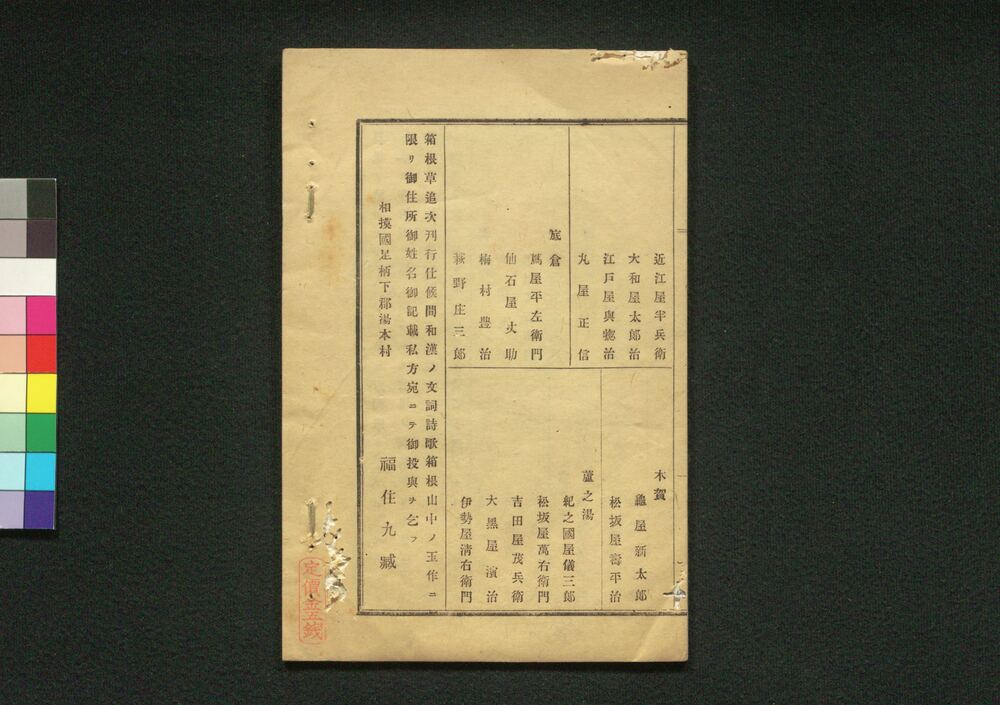 近江屋半兵衛
大和屋太郎治
江戸屋與惣治
丸屋正信
底倉
蔦屋平左衛門
仙石屋丈助
梅村豊治
萩野庄三郎
木賀
龜屋新太郎
松坂屋壽平治
蘆之湯
紀之國屋儀三郎
松坂屋萬右衛門
吉田屋茂兵衛
大黒屋濱治
伊勢屋淸右衛門
箱根草追次刋行仕候間和漢ノ文詞詩歌箱根山中ノ玉作ニ
限リ御住所御姓名御記載私方宛ニテ御投與ヲ乞フ
相摸國足柄下郡湯本村
福住九藏
定價金五錢